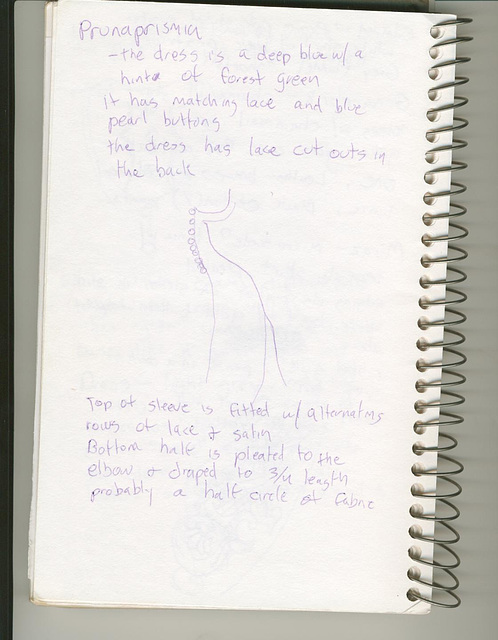 Prunaprismia
- the dress is a deep blue w/ a
hint of forest green
it has matching lace and blue
pearl buttons
the dress has lace cut outs in
the back
Top of sleeve is fitted w/ alternating
rows of lace & satin
Bottom half is pleated to the
elbow & draped to 3/4 length
probably a half circle of fabric